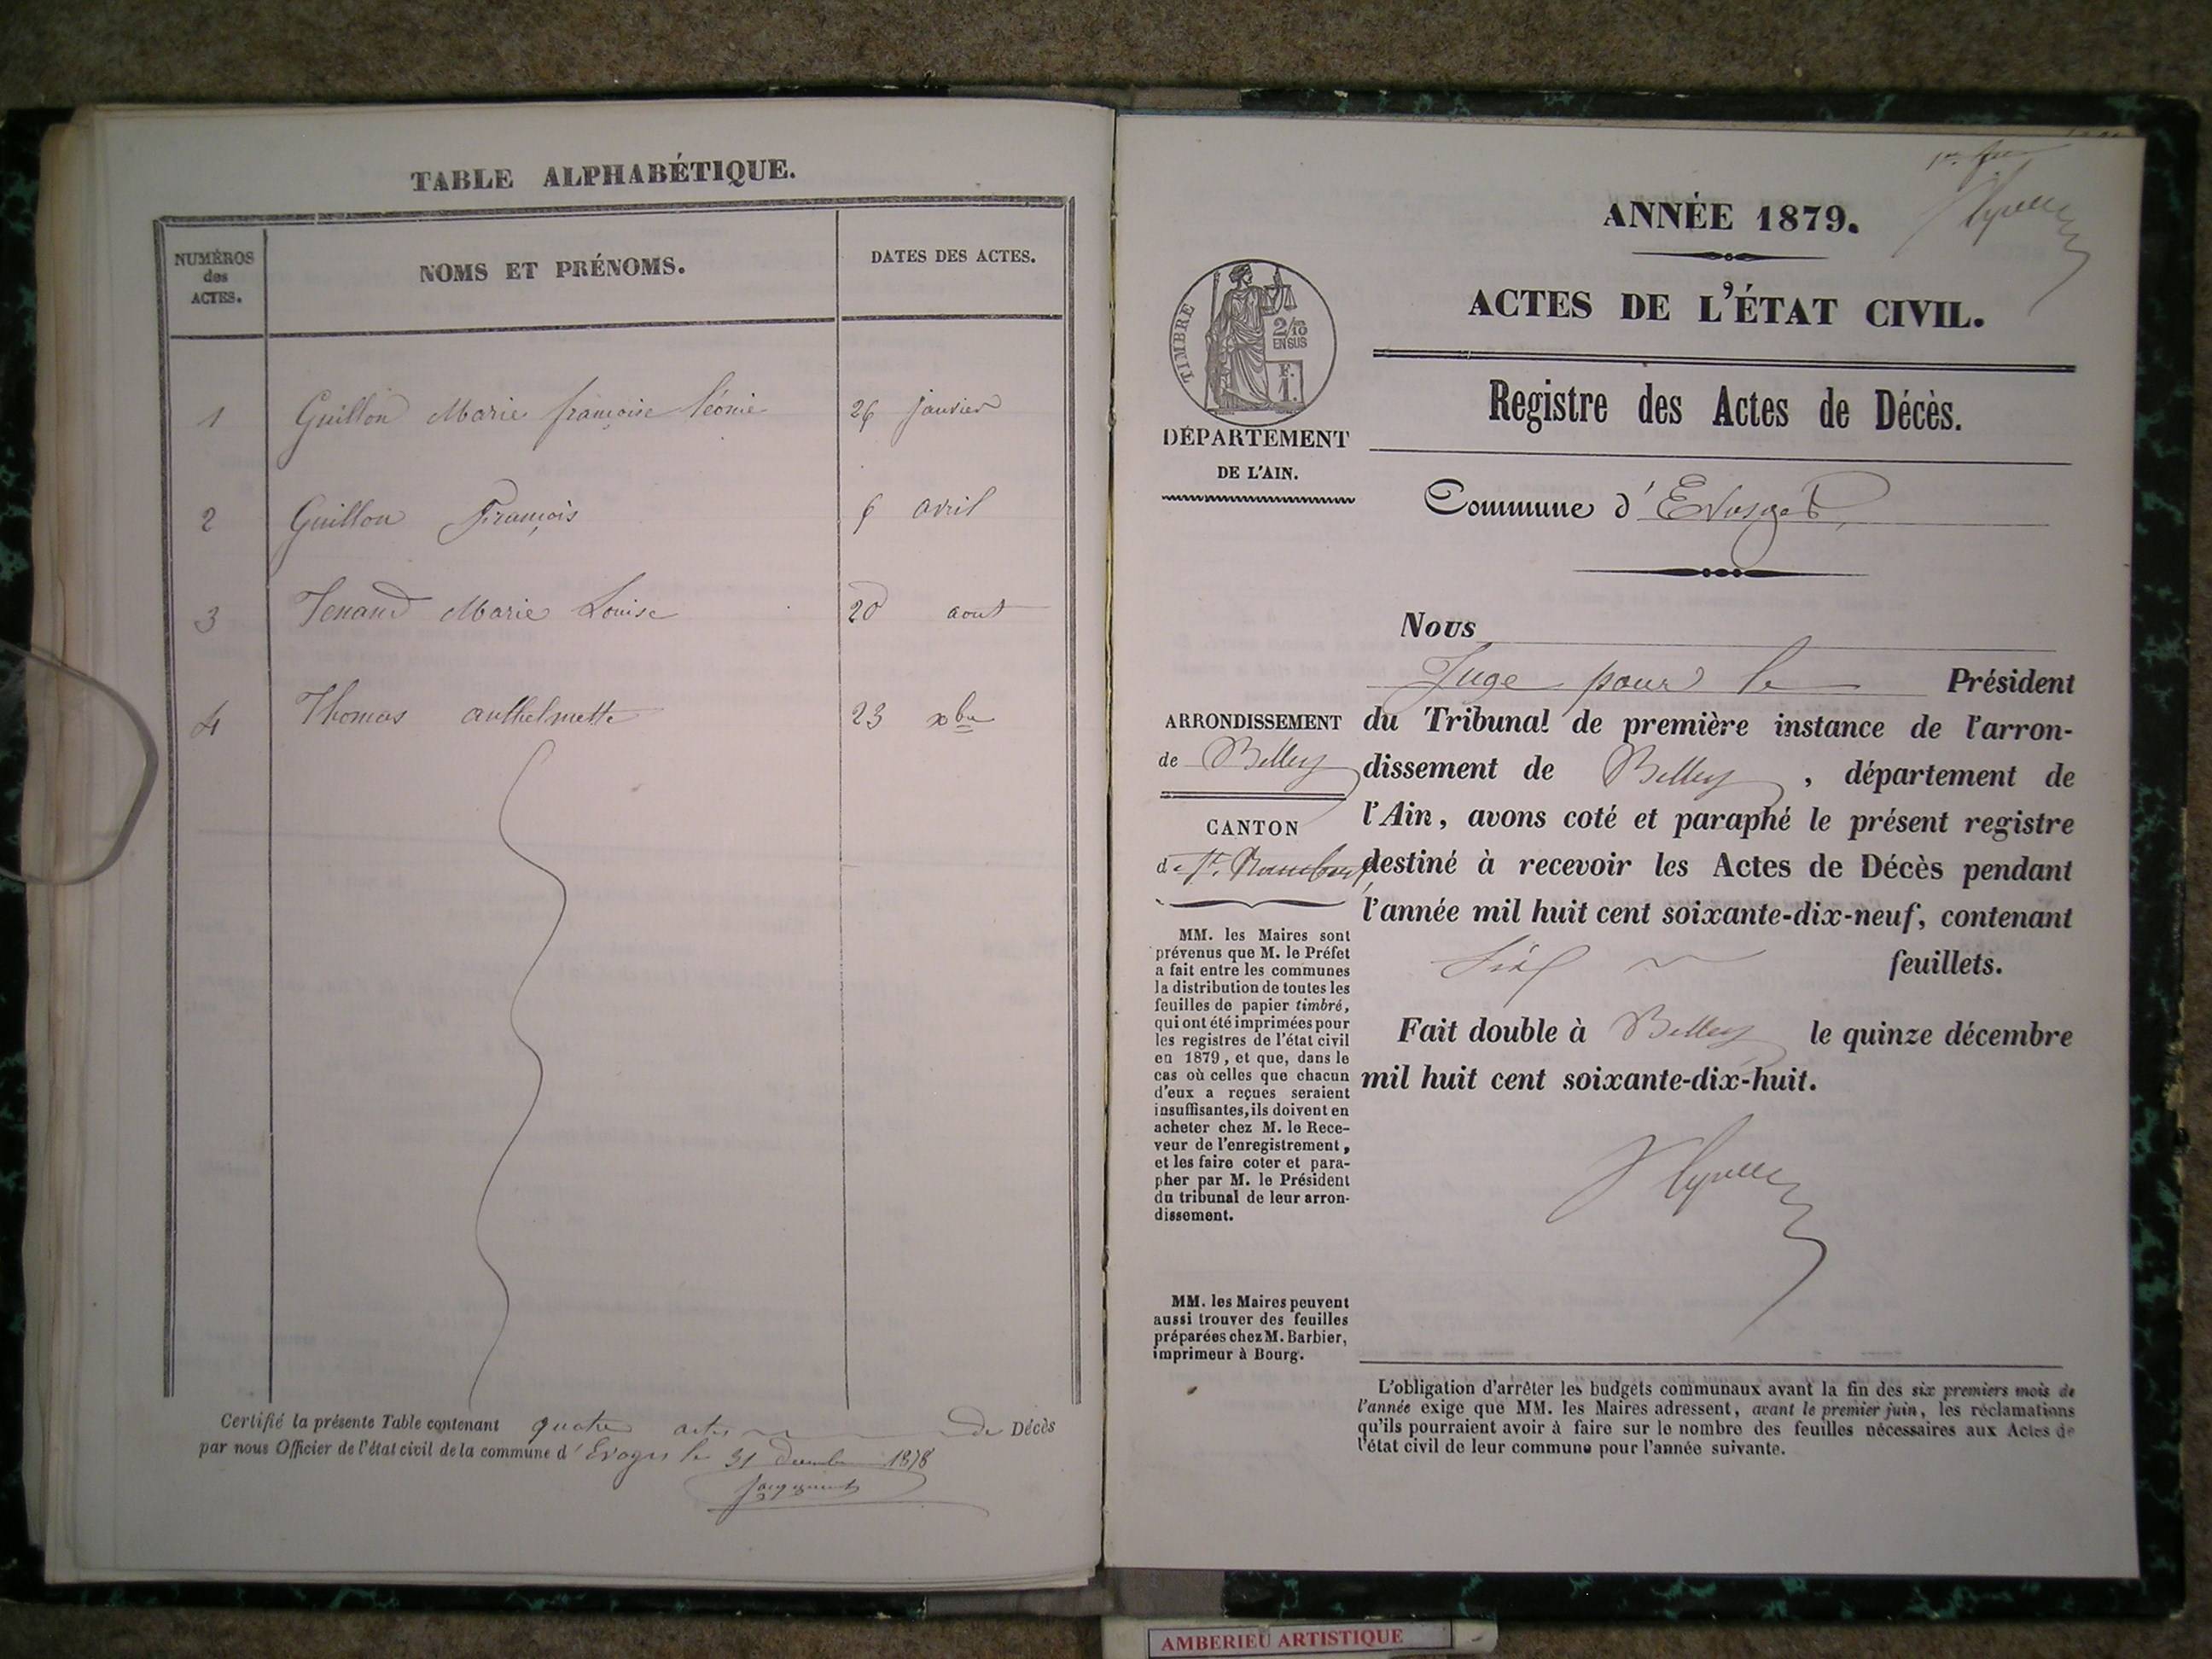 TABLE ALPHABÉTIQUE.
NUMÉROS
des
ACTES.
NOMS ET PRÉNOMS.
DATES DES ACTES.
1 Guillon Marie françoise léonie 26 janvier
2 Guillon François 6 avril
3 Tenand Marie Louise 20 aout
4 Thomas anthelmette 23 xbre
Certifié la présente Table contenant quatre actes de Décès
par nous Officier de l'état civil de la commune d'Evoges le 31 décembre 1878
ANNÉE 1879.
ACTES DE L'ÉTAT CIVIL.
Registre des Actes de Décès.
TIMBRE
2/10
EN SUS
F.
1.
DÉPARTEMENT
DE L'AIN.
Commune d'Evosges
Nous
Juge pour le Président
du Tribunal de première instance de l'arron-
dissement de Belley, département de
l'Ain, avons coté et paraphé le présent registre
destiné à recevoir les Actes de Décès pendant
l'année mil huit cent soixante-dix-neuf, contenant
feuillets.
Fait double à Belley le quinze décembre
mil huit cent soixante-dix-huit.
ARRONDISSEMENT
de Belley
CANTON
de St. Rambert
MM. les Maires sont
prévenus que M. le Préfet
a fait entre les communes
la distribution de toutes les
feuilles de papier timbré,
qui ont été imprimées pour
les registres de l'état civil
en 1879, et que, dans le
cas où celles que chacun
d'eux a reçues seraient
insuffisantes, ils doivent en
acheter chez M. le Rece-
veur de l'enregistrement,
et les faire coter et para-
pher par M. le Président
du tribunal de leur arron-
dissement.
MM. les Maires peuvent
aussi trouver des feuilles
préparées chez M. Barbier,
imprimeur à Bourg.
L'obligation d'arrêter les budgets communaux avant la fin des six premiers mois de
l'année exige que MM. les Maires adressent, avant le premier juin, les réclamations
qu'ils pourraient avoir à faire sur le nombre des feuilles nécessaires aux Actes de
l'état civil de leur commune pour l'année suivante.
AMBERIEU ARTISTIQUE